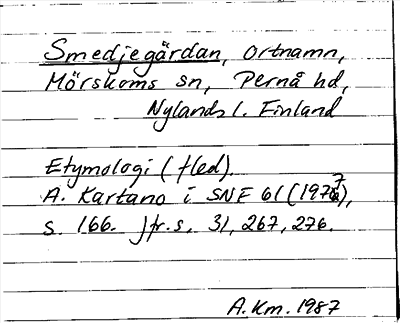 Smedjegårdan, ortnamn,
Mörskoms sn, Pernå hd,
Nylands l. Finland
Etymologi (fled).
A. Kartano i SNF 61 (1977),
s. 166. Jfr. s. 31, 267, 276.
A.Km. 1987